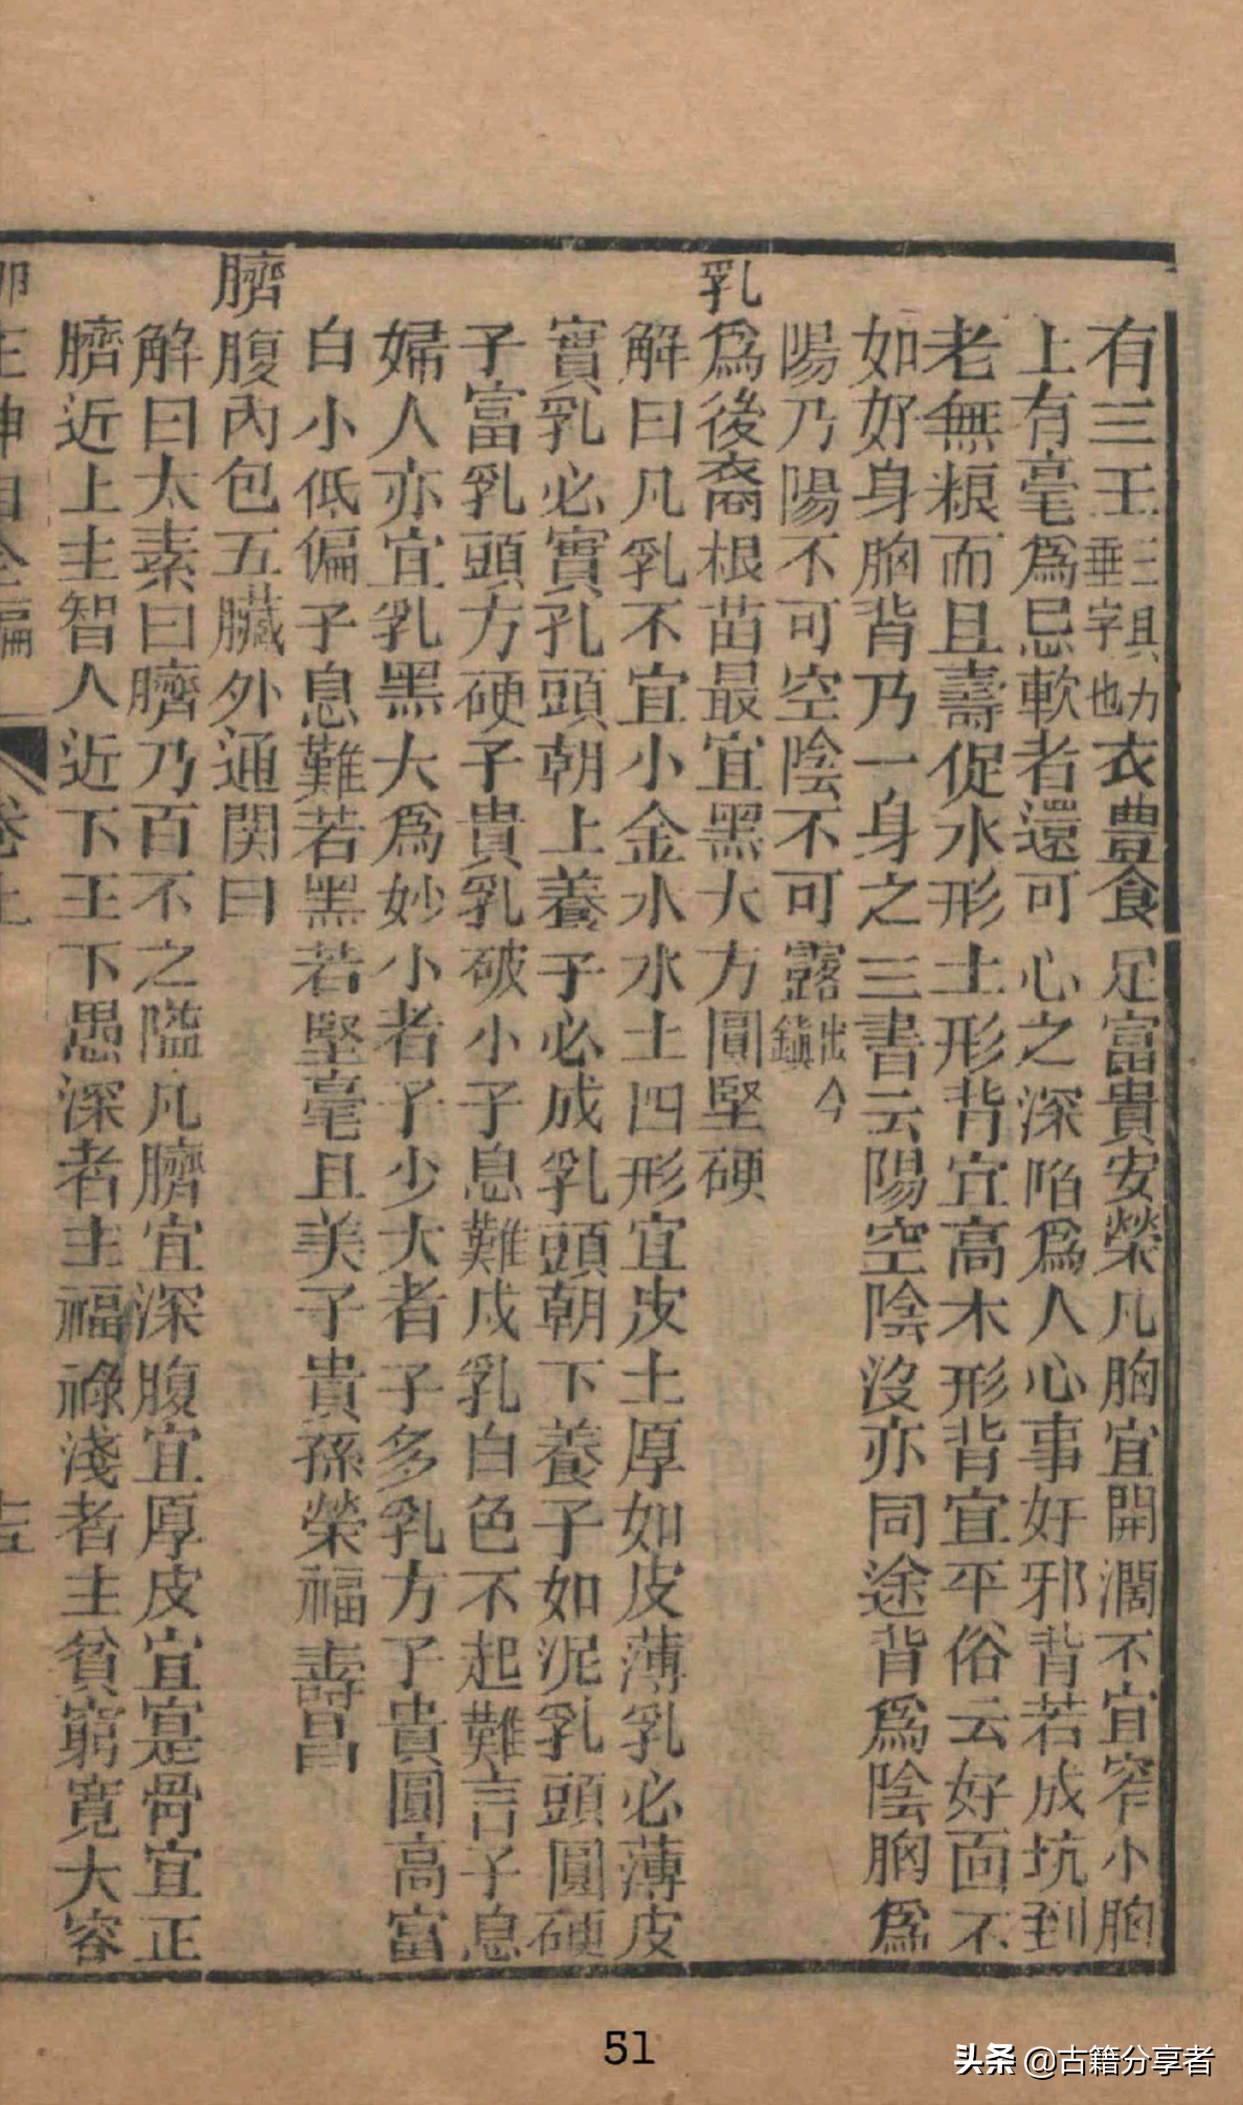 有三王三具力垂字也衣豊食足富貴安榮凡胸宜開濶不宜窄小胸
上有毫爲忌軟者還可心之深陷爲人心事好邪背若成坑到
老無粮而且壽促水形土形背宜高木形背宜平俗云好面不
如好身胸背乃一身之三書云陽空陰沒亦同途背爲陰胸爲
陽乃陽不可空陰不可露出今鎮
乳爲後裔根苗最宜黑大方圓堅硬
解曰凡乳不宜小金水水土四形宜皮土厚如皮薄乳必薄皮
實乳必實孔頭朝上養子必成乳頭朝下養子如泥乳頭圓硬
子富乳頭方硬子貴乳破小子息難成乳白色不起難言子息
婦人亦宜乳黑大爲妙小者子少大者子多乳方子貴圓高富
白小低偏子息難若黑若堅毫且美子貴孫榮福壽昌
臍腹內包五臟外通関曰
解曰太素曰臍乃百不之隘凡臍宜深腹宜厚皮宜寔骨宜正
臍近上主智人近下王下愚深者主福祿淺者主貧窮寬大容
51
头条 @古籍分享者